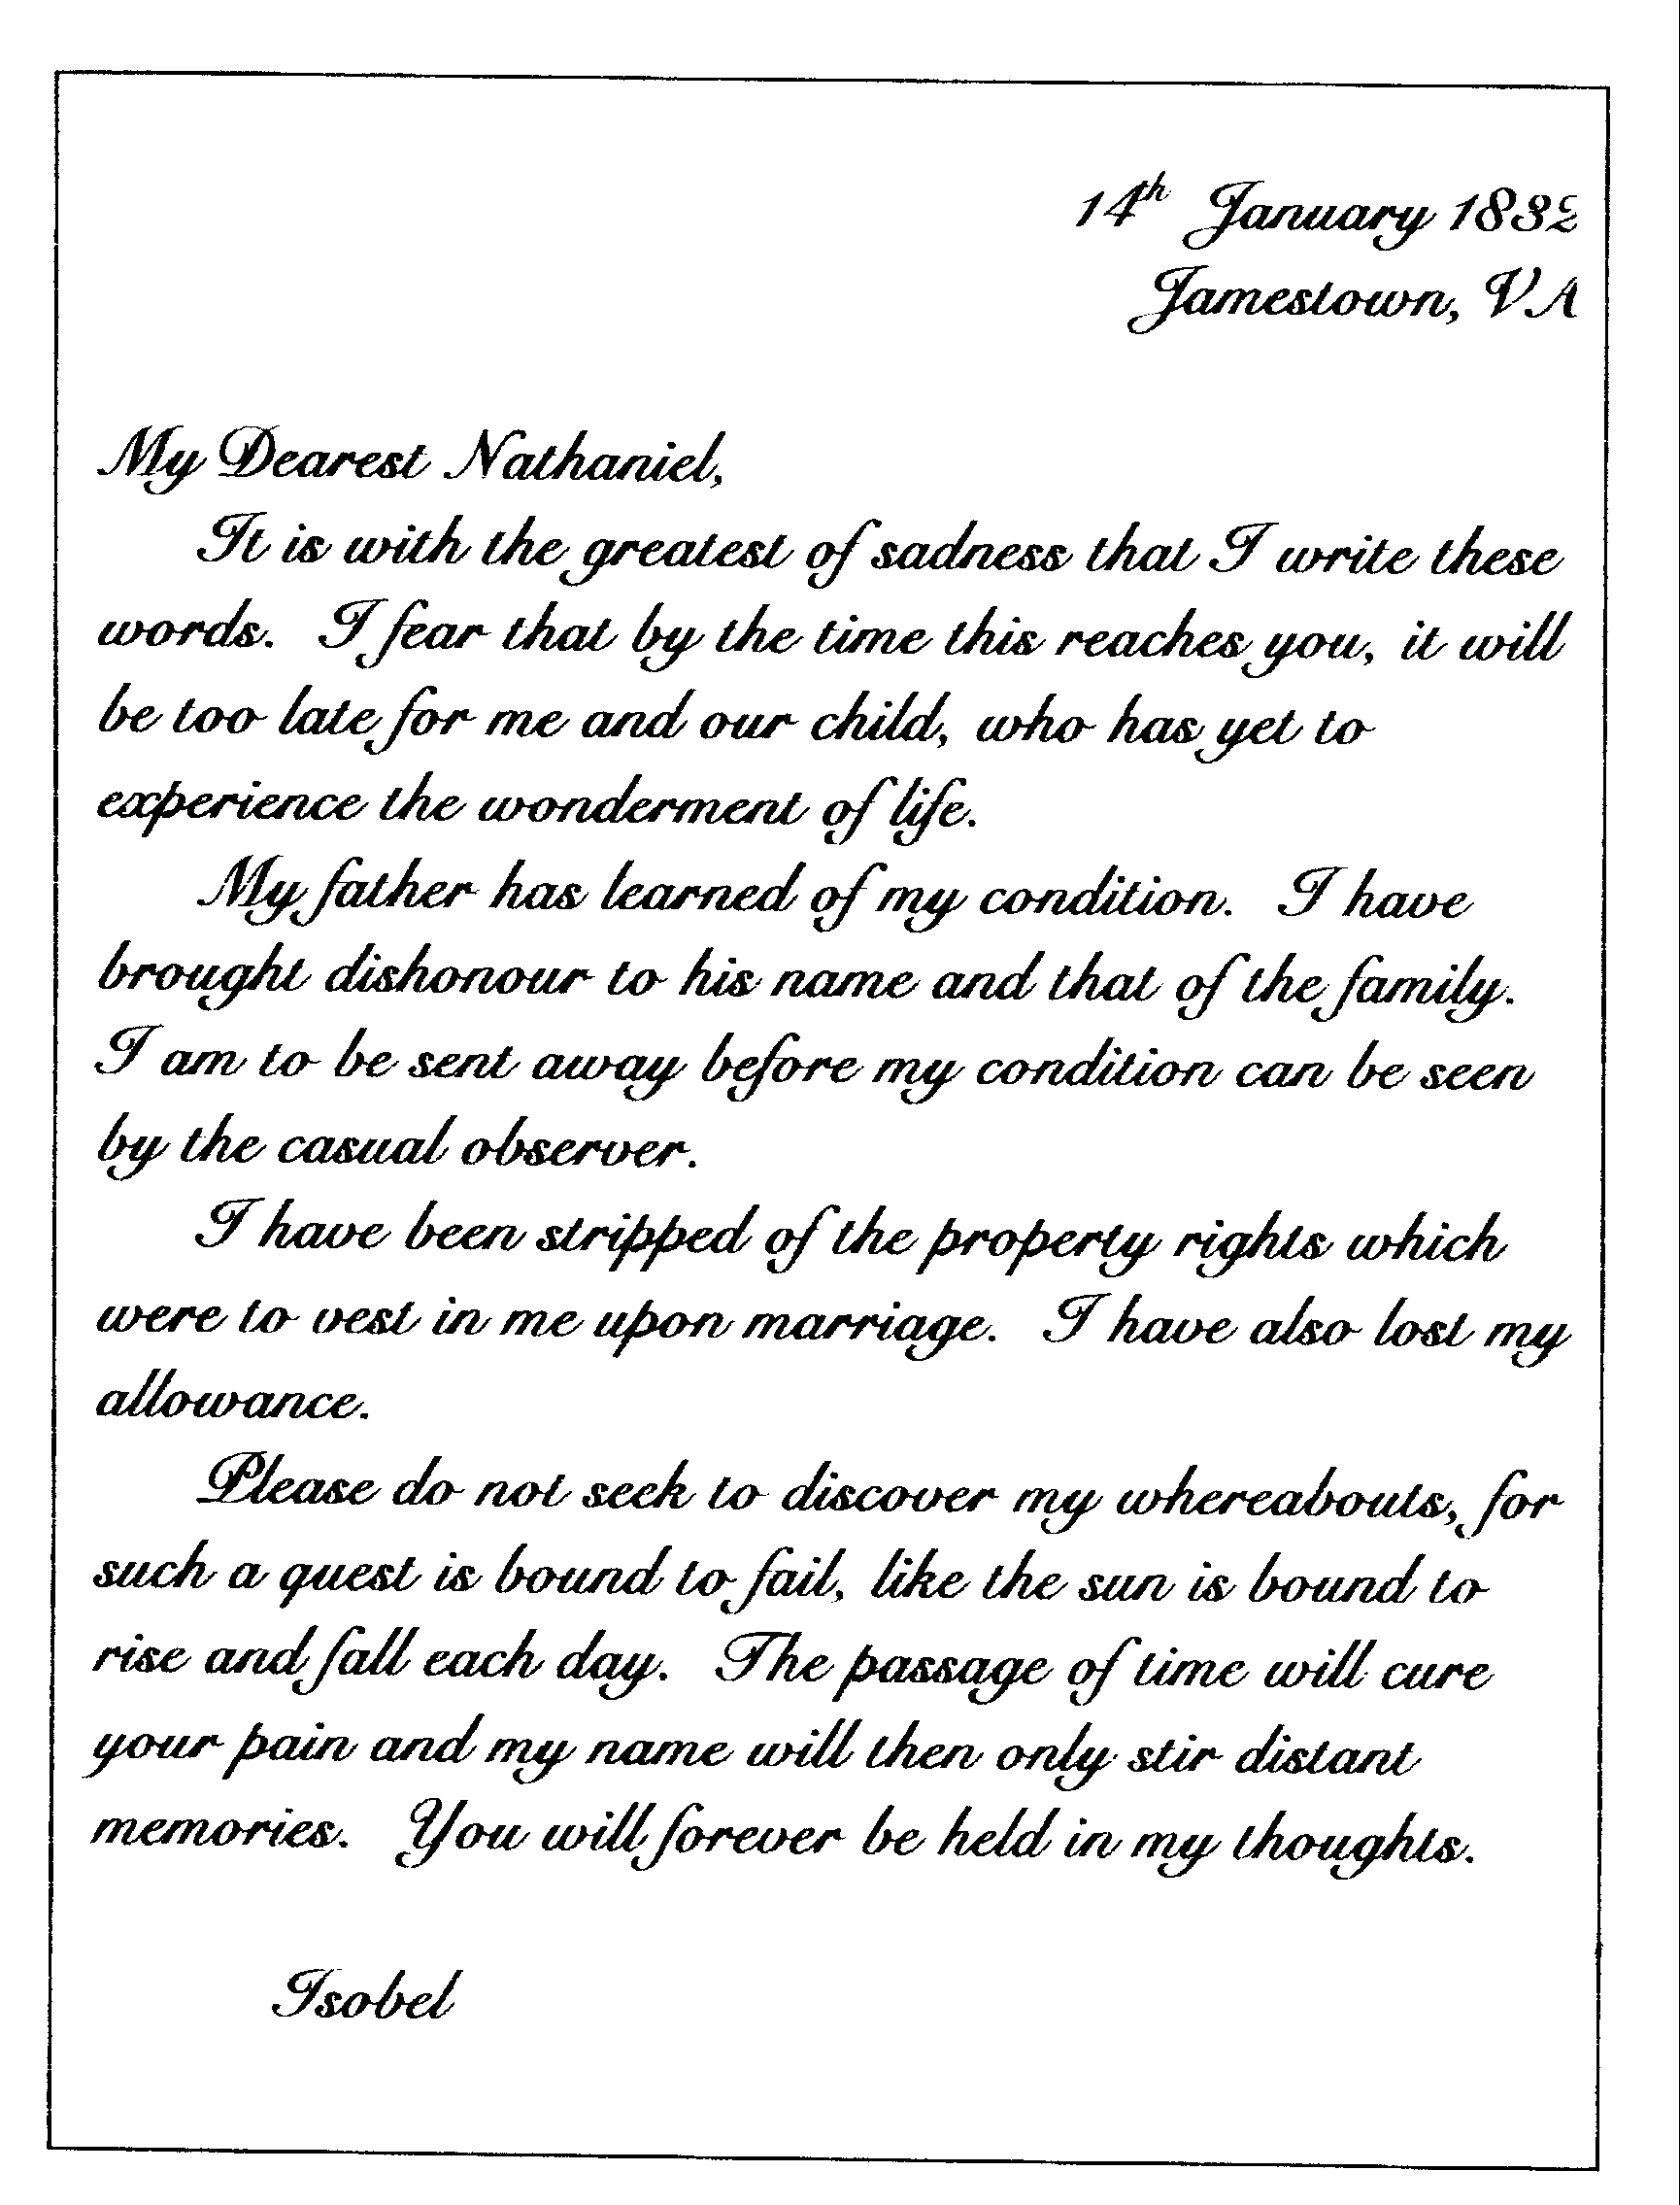 14th January 1832
Jamestown, VA
My Dearest Nathaniel,
It is with the greatest of sadness that I write these
words. I fear that by the time this reaches you, it will
be too late for me and our child, who has yet to
experience the wonderment of life.
My father has learned of my condition. I have
brought dishonour to his name and that of the family.
I am to be sent away before my condition can be seen
by the casual observer.
I have been stripped of the property rights which
were to vest in me upon marriage. I have also lost my
allowance.
Please do not seek to discover my whereabouts, for
such a quest is bound to fail, like the sun is bound to
rise and fall each day. The passage of time will cure
your pain and my name will then only stir distant
memories. You will forever be held in my thoughts.
Isobel